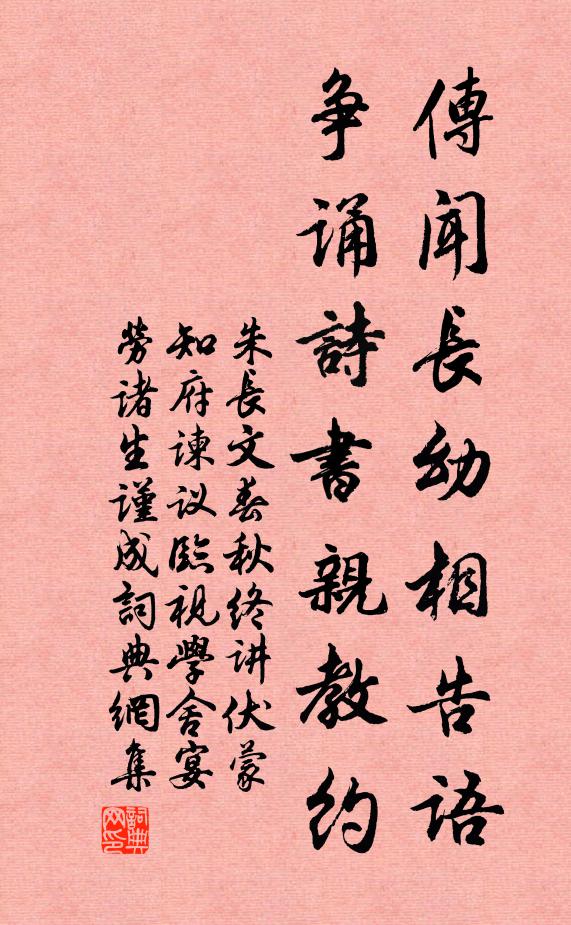 傳聞長幼相告語
争誦詩書親教約
朱長文春秋终讲伏蒙
知府諫议臨視學舍宴
勞諸生謹成詞典網集
詞典网印